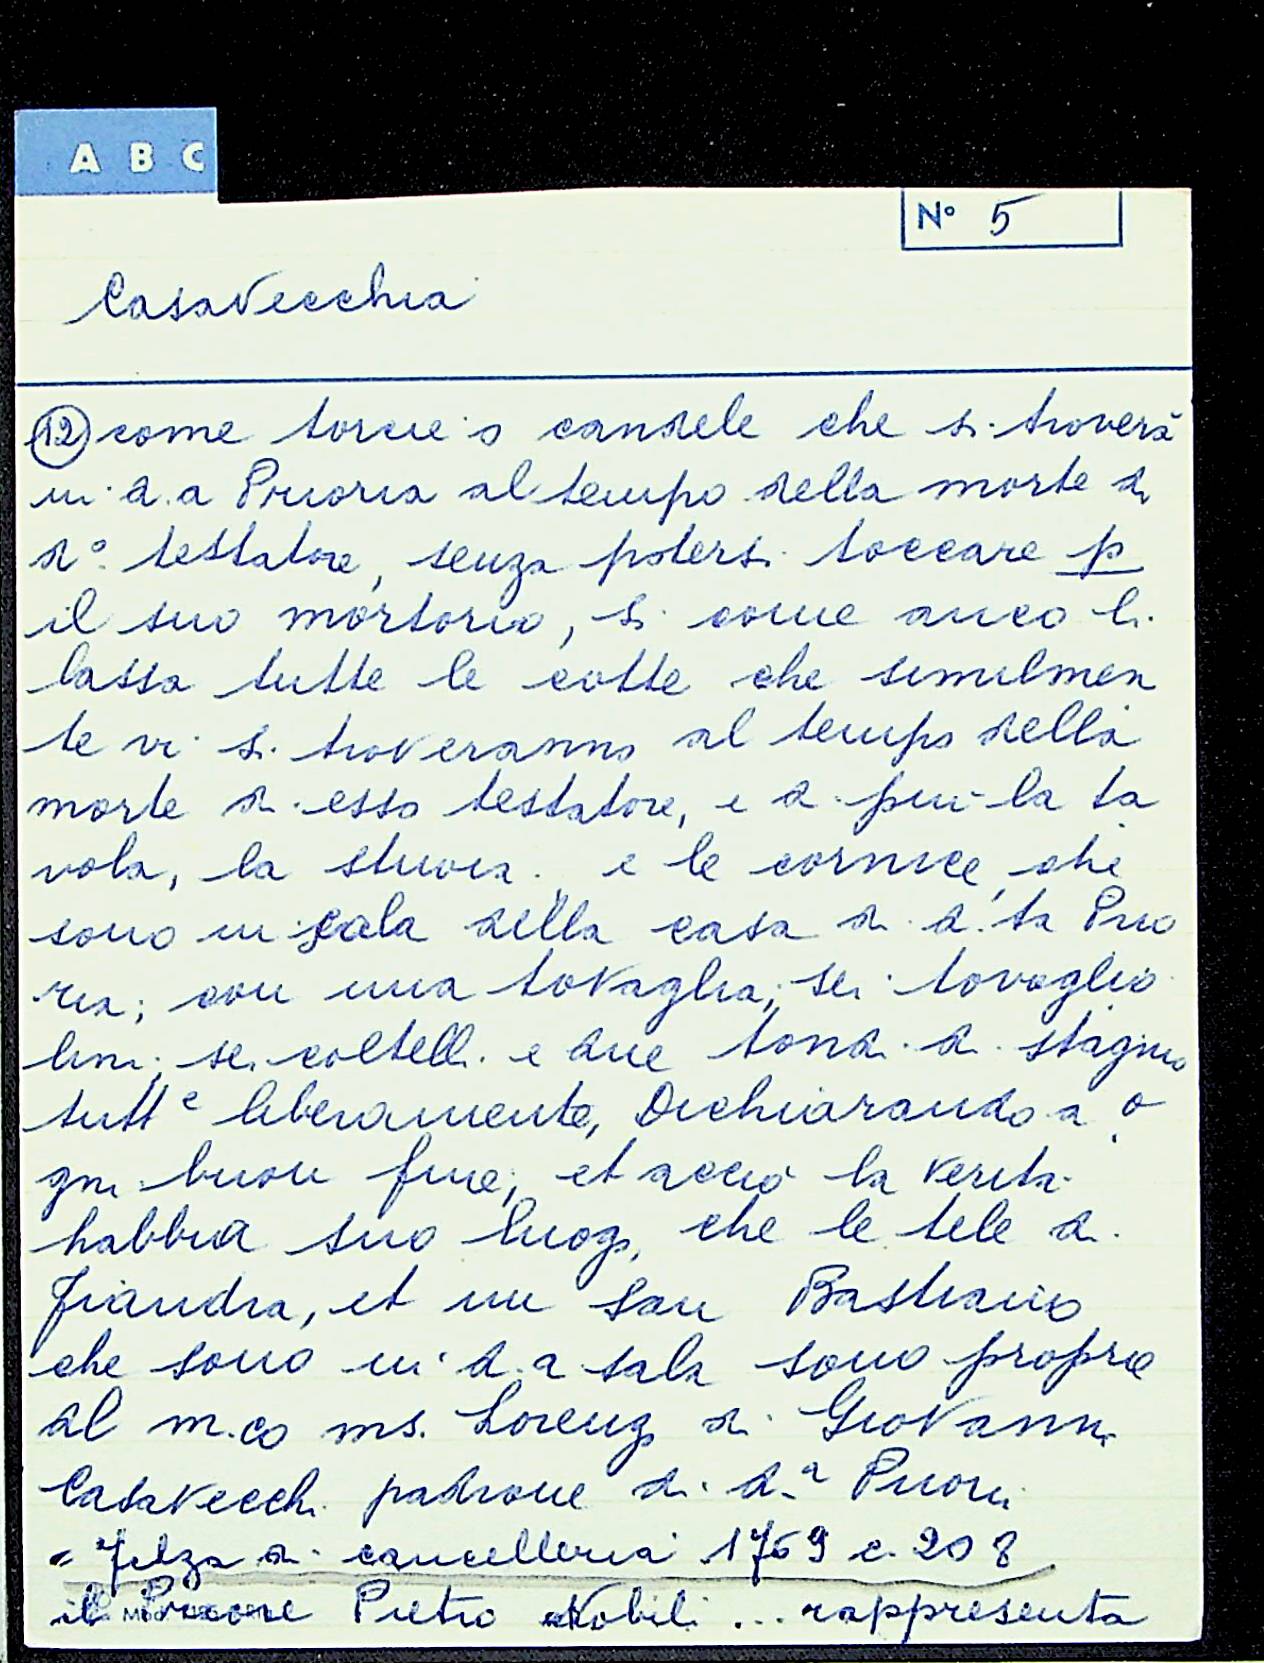 A B C
N° 5
CasaVecchia
(12) come torcie o candele che si troverà
in d.a Prioria al tempo della morte di
d.° testatore, senza potersi toccare p
il suo mortorio, si come anco li
lassa tutte le cotte che similmen
te vi si troveranno al tempo della
morte di esso testatore, e di piu la ta
vola, la stuoia e le cornice, che
sono in sala della casa di d.ta Prio
ria; con una tovaglia, sei tovaglio
lini, sei coltelli e due tondi di stagno
tutte liberamente, Dichiarando a o
gni buon fine, et acciò la verità
habbia suo luogo, che le tele di
Fiandra, et un San Bastiano
che sono in d.a sala sono proprie
al m.co ms. Lorenzo di Giovanni
Casavecchi padrone di d.a Priori
= Filza di cancelleria 1769 c. 208
il Priore Pietro Nobili ... rappresenta